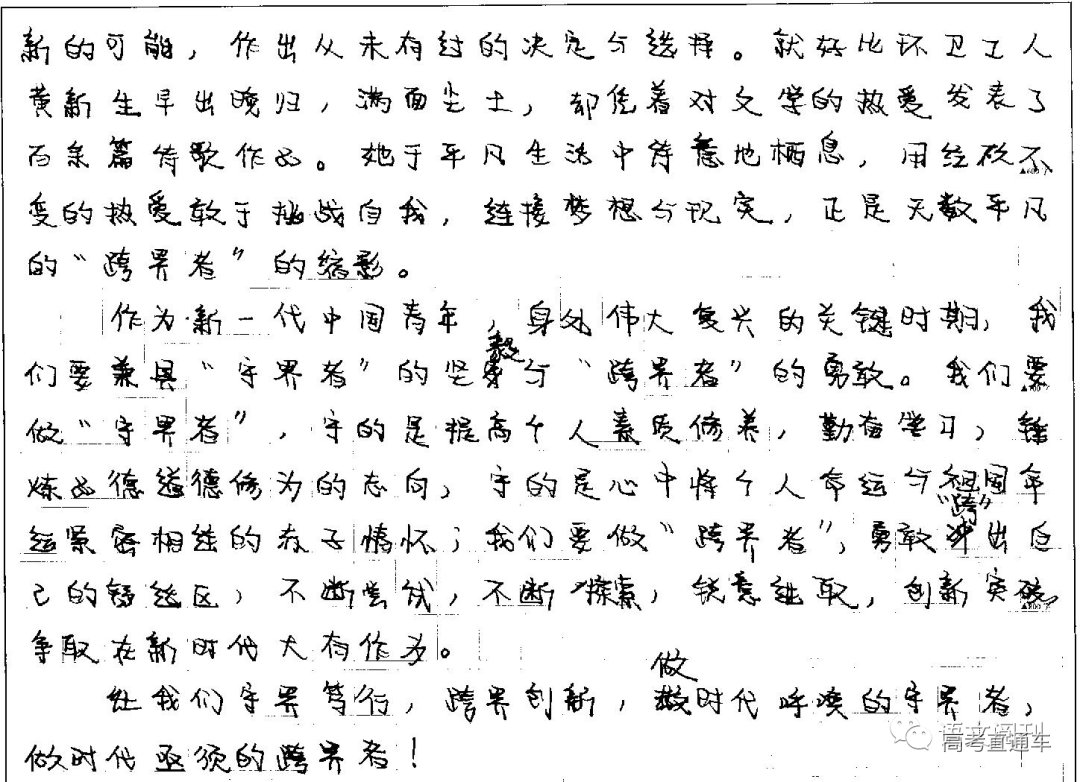 新的可能，作出从未有过的决定与选择。就好比环卫工人
黄新生早出晚归，满面尘土，却凭着对文学的热爱发表了
百余篇诗歌作品。她于平凡生活中诗意地栖息，用经砍不
变的热爱敢于挑战自我，连接梦想与现实，正是无数平凡
的“跨界者”的缩影。
作为新一代中国青年，身处伟大复兴的关键时期，我
们要兼具“守界者”的坚毅与“跨界者”的勇敢。我们要
做“守界者”，守的是提高个人素质修养，勤奋学习，锤
炼品德道德修为的志向，守的是心中将个人命运与祖国命
运紧密相连的赤子情怀；我们要做“跨界者”，勇敢“跨”出自
己的舒适区，不断尝试，不断探索，锐意进取，创新突破，
争取在新时代大有作为。
让我们守界笃行，跨界创新，做时代呼唤的守界者，
做时代亟须的跨界者！
语文阅刊
高考直通车